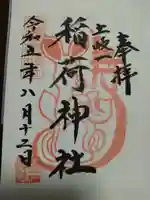 奉拝
土岐
稲荷神社
令和五年八月十二日